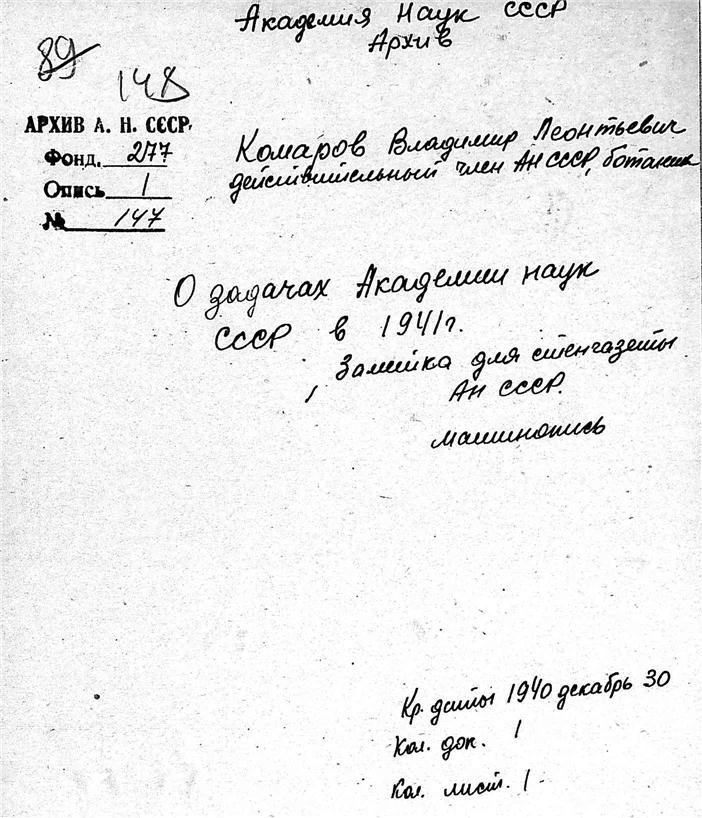 Академия Наук СССР
Архив
89
148
АРХИВ А. Н. СССР.
Фонд. 277
Опись 1
№ 147
Комаров Владимир Леонтьевич
действительный член АН СССР, ботаник
О задачах Академии наук
СССР в 1941 г.
Заметка для стенгазеты
АН СССР.
машинопись
Кр. даты 1940 декабрь 30
Кол. док. 1
Кол. лист. 1.